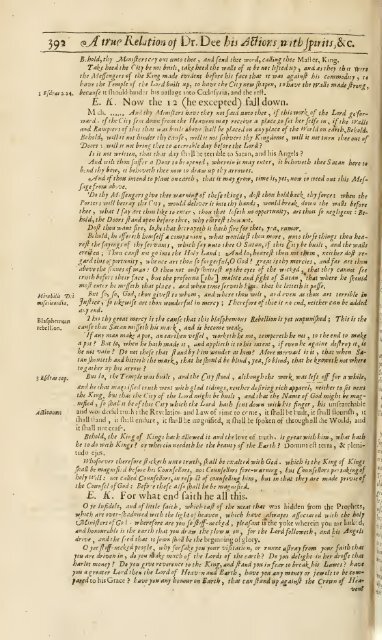 392 A true Relation of Dr. Dee his Actions, with spirits, &c.
Behold, thy Ministers cry out unto thee, and send thee word, calling thee Master, King.
Take heed the City be not built, take heed the walls of it be not lifted up, and as they that were
the Messengers of the King made evident before his face that it was against his commodity, to
have the Temple of the Lord built up, to have the City new sprung, to have the Walls made strong,
1 Esdras 2.24. because it should hinder his passage into Coelosyria, and the rest.
E. K. Now the 12 (he excepted) fall down.
Mich. ...... And thy Ministers have they not said unto thee, if this work of the Lord go for-
ward, if the City sent down from the Heavens may receive a place to set her selfe in, if the Walls
and Rampiers of this that was built above shall be placed in any place of the World on earth, Behold,
Behold, will it not hinder thy course, will it not subvert thy Kingdome, will it not turn thee out of
Doors? will it not bring thee to a terrible day before the Lord?
Is it not written, that that day shall be terrible to Satan, and his Angels?
And wilt thou suffer a Door to be opened, wherein it may enter, it behoveth thee Satan here to
bend thy bow, it behoveth thee now to draw up thy arrowes.
And if thou intend to plant on earth, that it may grow, time is, yet, now to send out this Mes-
sage from above.
Do thy Messengers give thee warning of these things, dost thou hold back thy forces when the
Porters will betray the City, would deliver it into thy hands, would break down the walls before
thee, what I say are thou like to enter, thou that losest an opportunity, art thou so negligent: Be-
hold, the Doors stand open before thee, why enterest thou not.
Dost thou want fire, Is he that bringeth it hath fire for thee, yea, rumor.
Behold, he offereth himself a companion, what wouldest thou more, unto these things thou hea-
rest the sayings of thy servant, which say unto thee O Satan, if this City be built, and the walls
erected; Then canst not go into the Holy land: And lo, hearest thou not them, neither dost re-
gard time opportunity, wherein are thou so forgetful, O God! great is thy mercies, and far are thou
above the sons of man: O thou not only boastest before the eyes of the world, that they cannot see
truth before their face, but the presumption and malice and sight of Satan, that where he should
most enter he misseth that place, and when time serveth him that he letteth it passe.
Mirabilis Dei misericordia. But so, so, God, thou givest to whom, and where thou wilt, and even as thou are terrible in
Justice, so likewise are thou wonderful to mercy; Therefore of thee is no end, neither can be added
any end.
Blasphemous rebellion. I but this great mercy is the cause that this blasphemous Rebellion is yet unpunished; This is the
cause that Satan misseth his mark, and is become weak.
If any man make a pot, an earthen vessel, worketh he not, tempereth he not, to the end to make
a pot? But lo, when he hath made it, and applyeth it to his intent, if even he against destroy it, is
he not vain? Do not those that stand by him wonder at him? More we read it is, that when Sa-
tan shooteth and hitteth the mark, that he should be blind, yea, so blind, that he knoweth not where
to gather up his arrows?
3 Esdras cap. But lo, the Temple was built, and the City stood, although the work was left off for a while,
and he that magnified truth went with glad tidings, neither desiring rich apparel, neither to sit next
the King, but that the City of the Lord might be built, and that the Name of God might be mag-
nified; so shall it be of this City which the Lord hath sent down with his finger, his unsearchable
and wonderful truth: the Revelation and Law of time to come, it shall be built, it shall flourish, it
shall stand, it shall endure, it shall be magnified, it shall be spoken of throughout all the World, and
it shall not cease.
Behold, the King of Kings hath allowed it and the love of truth, is great with him, what hath
he to do with Kings? or what is needeth he the beauty of the Earth? Domini est terra, & pleni-
tudo ejus.
Whosoever therefore seeketh unto truth, shall be exalted with God, which is the King of Kings
shall be magnified before his Counsellors, not Counsellors forewarning, but Counsellors partaking of
holy will: not called Counsellors, in respect of counselling him, but in that they are made privie of
the Counsel of God: Before these also shall he be magnified.
E. K. For what end saith he all this.
O ye Infidels, and of little faith, which eat of the meat that was hidden from the Prophets,
which are over-shadowed with the light of heaven, which have alwayes associated with the holy
Ministers of God: wherefore are you so stiff-necked, pleasant is the yoke wherein you are linked,
and honourable is the earth that you draw the plow on, for the Lord followeth, and his Angels
drive, and the seed that is sown shall be the beginning of glory.
O ye stiff-necked people, why forsake you your visitation, or runne astray from your faith that
you are drown in, do you make much of the Lords of the earth? Do you delight in her drosse that
harlot money? Do you give reverence to the King, and stand you in fear to break his Lawes? have
you a greater Lord then the Lord of Heaven and Earth, have you any money or jewels to be com-
pared to his Grace? have you any honour in Earth, that can stand up against the Crown of Hea-
vent